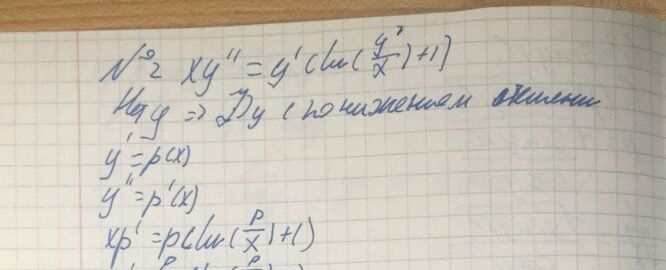 №2 xy'' = y'(ln(y'/x)+1)
Нет y => Ду с понижением степени
y' = p(x)
y'' = p'(x)
xp' = p(ln(p/x)+1)